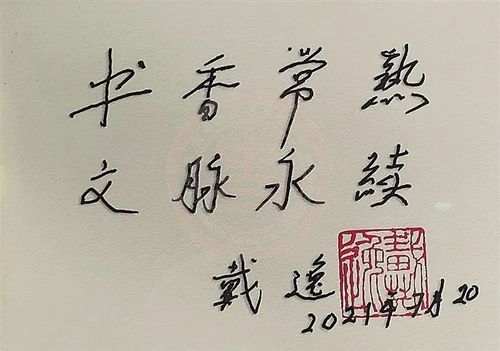 书香常熱
文脉永續
戴逸
2021年7月20